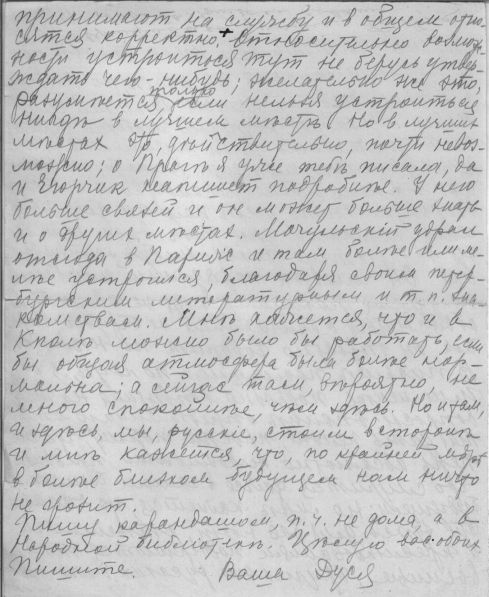 принимают на службу и в общем отно-
сятся корректно. + Относительно возмож-
ности устроиться тут не берусь утвер-
ждать чего-нибудь; желательно же это,
разумѣется, только если нельзя устроиться
нигдѣ в лучшем мѣстѣ. Но в лучших
мѣстах это, дѣйствительно, почти невоз-
можно; о Прагѣ я уже тебѣ писала, да
и Юрчик напишет подробнѣе. У него
больше связей и он может больше знать
и о других мѣстах. Мочульскій удрал
отсюда в Париж и там болѣе или ме-
нѣе устроился, благодаря своим петер-
бургским литературным и т. п. зна-
комствам. Мнѣ кажется, что и в
можно было бы работать, если
бы общая атмосфера была болѣе нор-
мальна; а сейчас там, вѣроятно, не
много спокойнѣе, чѣм здѣсь. Но и там,
и здѣсь, мы, русскіе, стоим в сторонѣ
и мнѣ кажется, что, по крайней мѣрѣ
в болѣе близком будущем нам ничто
не грозит.
Пишу карандашом, п. ч. не дома, а в
Народной библіотекѣ. Цѣлую вас обоих
Пишите. Ваша Дуся